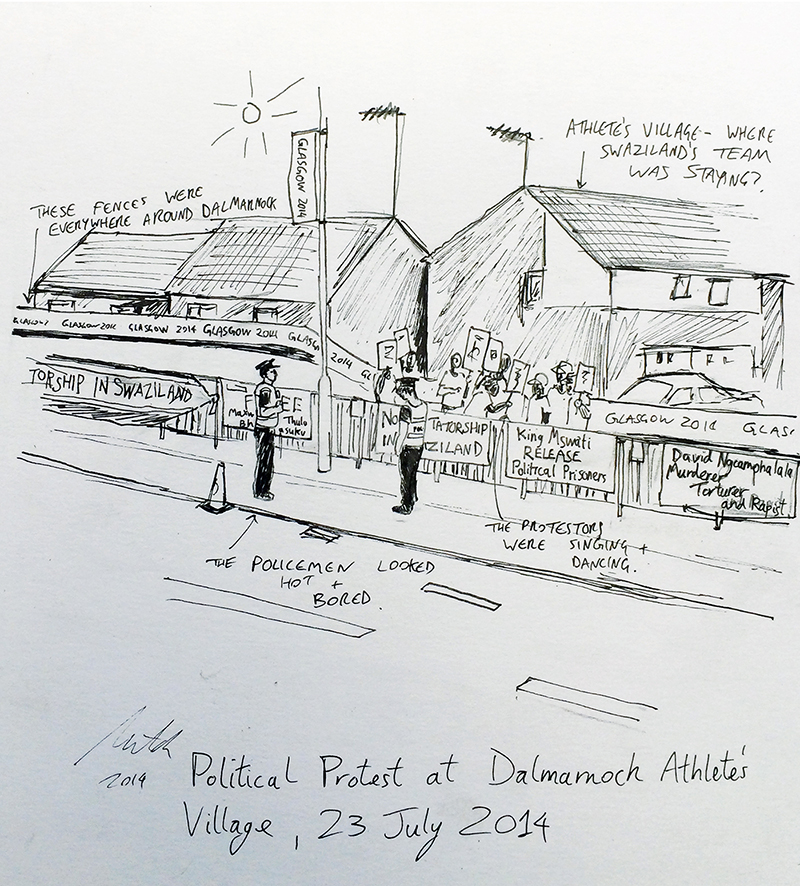 ATHLETE'S VILLAGE - WHERE
SWAZILAND'S TEAM
WAS STAYING?
GLASGOW 2014
THESE FENCES WERE
EVERYWHERE AROUND DALMARNOCK
GLASGOW GLASGOW 2014 GLASGOW 2014 GLASGOW 2014 GLASGO
2014 GL
TORSHIP IN SWAZILAND
FREE
Thulo
NO
IN
TATORSHIP
ZILAND
King Mswati
RELEASE
Political Prisoners
GLASGOW 2014 GLAS
David Ngcamphalala
Murderer
Torturer
and Rapist
THE PROTESTORS
WERE SINGING +
DANCING.
THE POLICEMEN LOOKED
HOT +
BORED.
2014
Political Protest at Dalmarnock Athlete's
Village, 23 July 2014